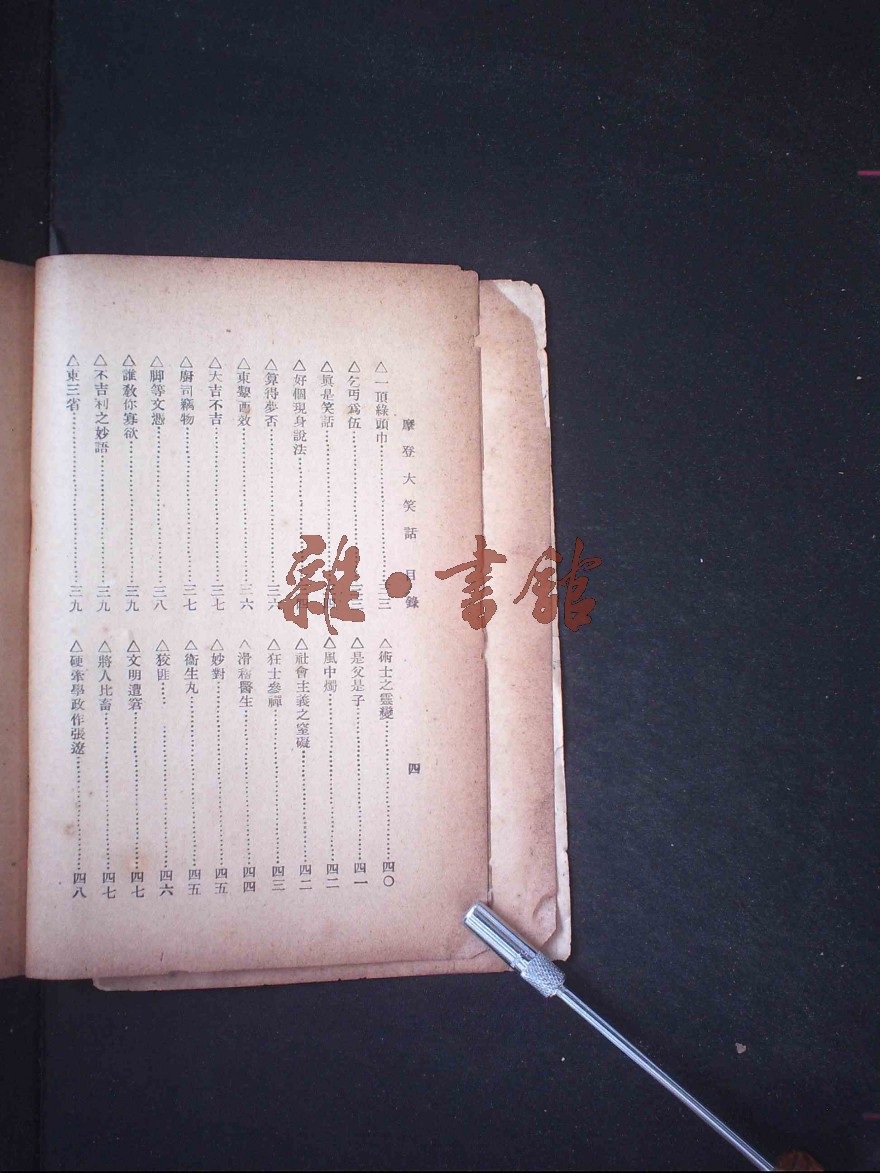 摩登大笑話 目錄
四
△一頂綠頭巾……三三
△乞丐爲伍……三三
△眞是笑話……
△好個現身說法……
△算得夢否……三六
△東顰西效……三六
△大吉不吉……三七
△廚司竊物……三七
△脚等文憑……三八
△誰敎你寡欲……三九
△不吉利之妙語……三九
△東三省……三九
△術士之靈變……四〇
△是父是子……四一
△風中燭……四二
△社會主義之窒礙……四二
△狂士參禪……四三
△滑稽醫生……四四
△妙對……四五
△衞生丸……四五
△狡誆……四六
△文明遭窘……四七
△將人比畜……四七
△硬漿學政作張遼……四八
雜·書館